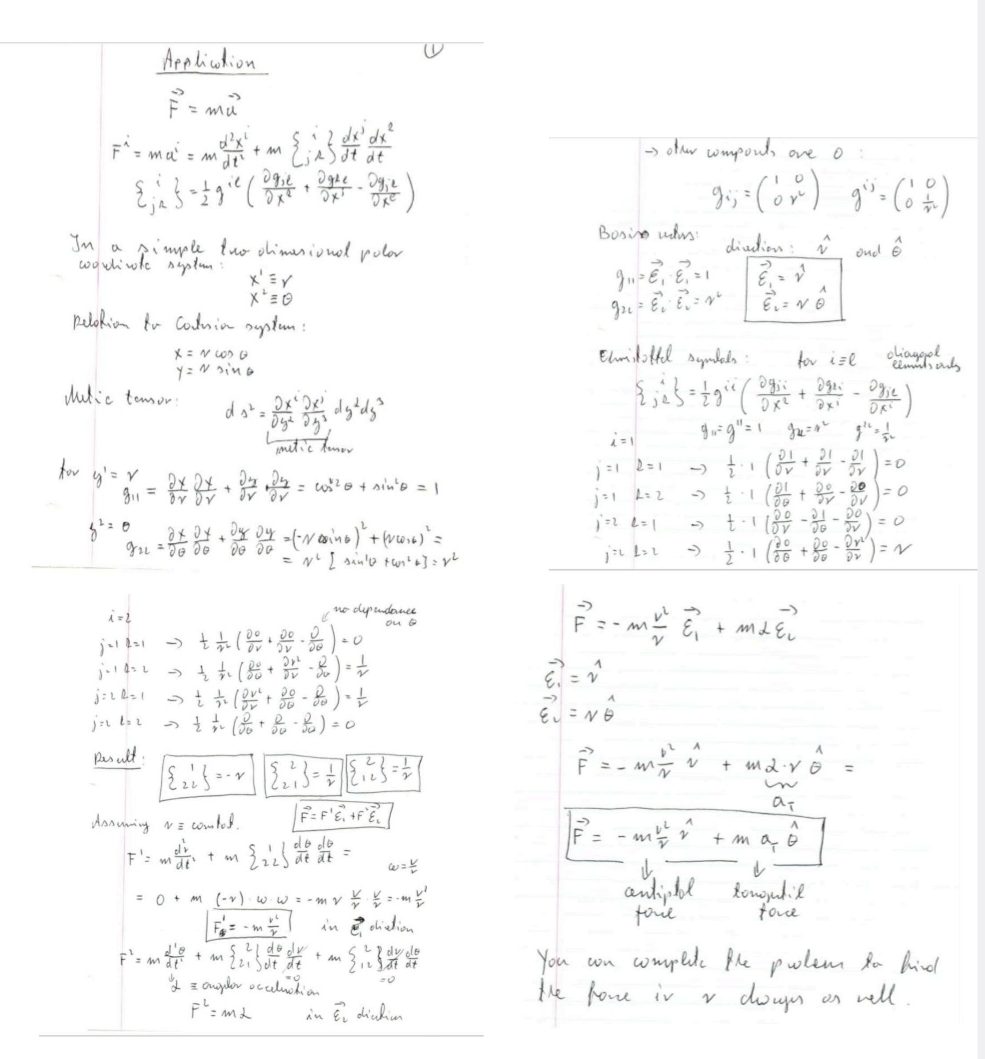 ①
Application
F⃗ = ma⃗
Fⁱ = maⁱ = m d²xⁱ/dtⁱ + m {i jk} dxʲ/dt dx²/dt
{i jk} = 1/2 gⁱˡ (∂gⱼₗ/∂x² + ∂g₂ₗ/∂xʲ − ∂gⱼₖ/∂xˡ)
In a simple two dimasional polar
coordinate system:
x¹ ≡ r
x² ≡ θ
Relation to Cartesian system:
x = r cos θ
y = r sin θ
Metic tensor: ds² = ∂xⁱ/∂y² ∂xʲ/∂y³ dy²dy³
metic tensor
for y¹ = r
g₁₁ = ∂x/∂r ∂x/∂r + ∂y/∂r · ∂y/∂r = cos²θ + sin²θ = 1
y² = θ
g₂₂ = ∂x/∂θ ∂x/∂θ + ∂y/∂θ ∂y/∂θ = (−r sinθ)² + (r cosθ)² =
= r² [sin²θ + cos²θ] = r²
→ other componts are 0:
gᵢⱼ = (1 0 0 r²) gⁱʲ = (1 0 0 1/r²)
Basis vectors: direction: r̂ and θ̂
g₁₁ = ε⃗₁ · ε⃗₁ = 1 ε⃗₁ = r̂
g₂₂ = ε⃗₂ · ε⃗₂ = r² ε⃗₂ = r θ̂
Christoffel symbols: for i≡l diagonal
elements only
{i jk} = 1/2 gⁱⁱ (∂gⱼᵢ/∂x² + ∂g₂ᵢ/∂xʲ − ∂gⱼₖ/∂xⁱ)
g₁₁ = g¹¹ = 1 g₂₂ = r² g²² = 1/r²
i=1
j=1 k=1 → 1/2 · 1 (∂1/∂r + ∂1/∂r − ∂1/∂r) = 0
j=1 k=2 → 1/2 · 1 (∂1/∂θ + ∂0/∂r − ∂0/∂r) = 0
j=2 k=1 → 1/2 · 1 (∂0/∂r − ∂1/∂θ − ∂0/∂r) = 0
j=2 k=2 → 1/2 · 1 (∂0/∂θ + ∂0/∂θ − ∂r²/∂r) = r
i=2
no dependance
on θ
j=1 k=1 → 1/2 1/r² (∂0/∂r + ∂0/∂r − ∂/∂θ) = 0
j=1 k=2 → 1/2 1/r² (∂0/∂θ + ∂r²/∂r − ∂/∂θ) = 1/r
j=2 k=1 → 1/2 1/r² (∂r²/∂r + ∂0/∂θ − ∂/∂θ) = 1/r
j=2 k=2 → 1/2 1/r² (∂/∂θ + ∂/∂θ − ∂/∂θ) = 0
Result: {1 22} = −r {2 21} = 1/r {2 12} = 1/r
Assuming r ≡ constat. F⃗ = F¹ε⃗₁ + F²ε⃗₂
F¹ = m d²r/dt² + m {1 22} dθ/dt dθ/dt = ω = v/r
= 0 + m (−r) · ω · ω = −m r v/r · v/r = −m v²/r
F¹ = −m v²/r in ε⃗₁ diretion
F² = m d²θ/dt² + m {2 21} dθ/dt dr/dt + m {2 12} dr/dt dθ/dt
=0 =0
α ≡ angular acceleration
F² = mα in ε⃗₂ diretion
F⃗ = −m v²/r ε⃗₁ + mα ε⃗₂
ε⃗₁ = r̂
ε⃗₂ = r θ̂
F⃗ = −m v²/r r̂ + mα·r θ̂ =
a_T
F⃗ = −m v²/r r̂ + m a_T θ̂
centiptal tangential
force force
You can complete the problem to find
the force if r changes as well.